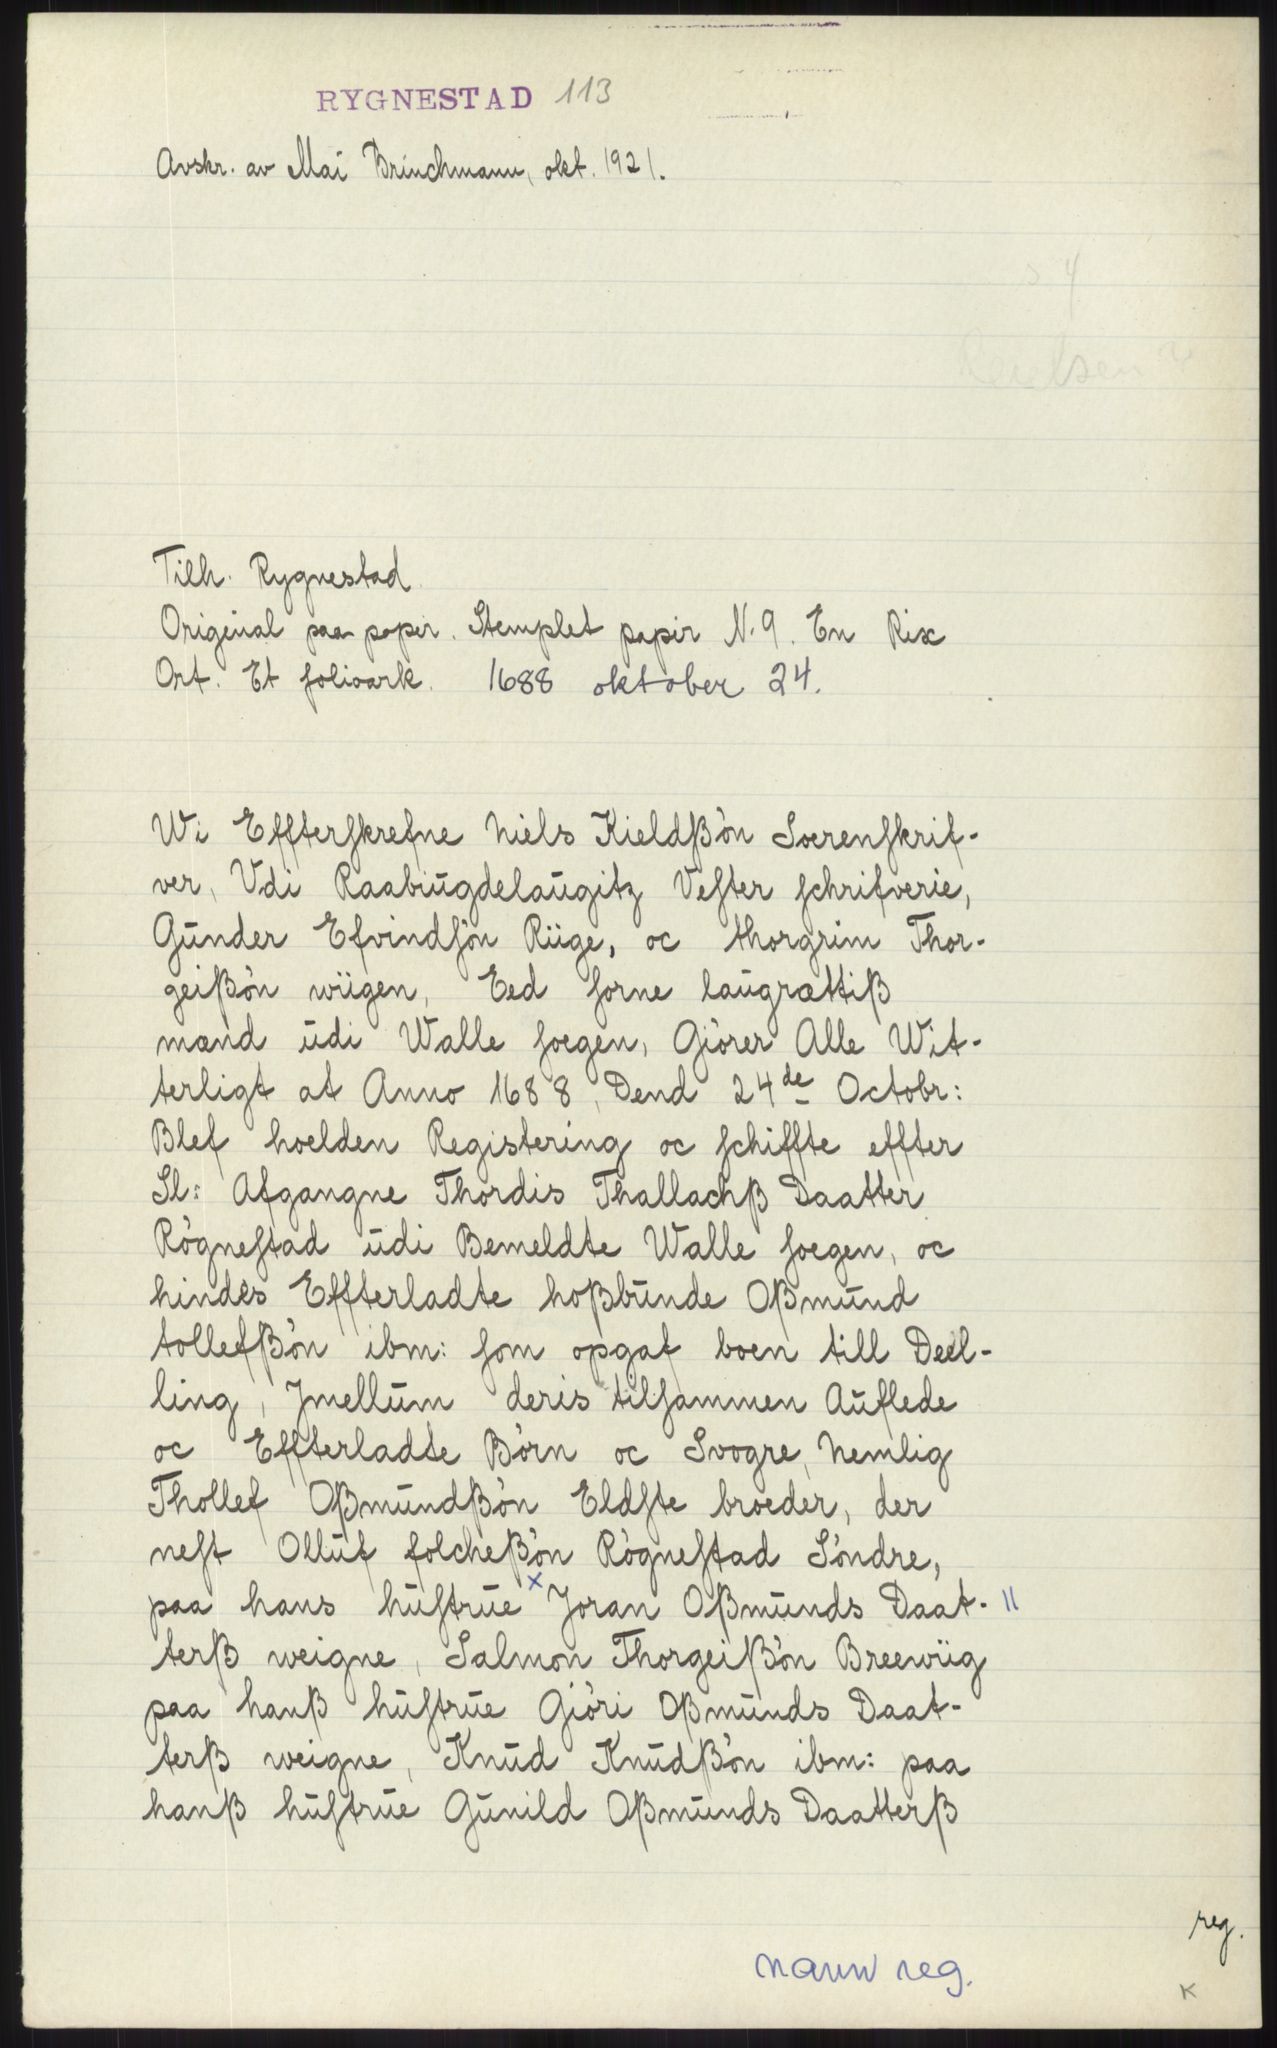 RYGNESTAD 113
Avskr. av Mai Brinchmann, okt. 1921.
Tilh. Rygnestad.
Original paa papir. Stemplet papir N. 9. En Rix
Ort. Et folioark. 1688 oktober 24.
Wi Effterſkrefne Niels Kieldßøn Soerenſkrif-
ver, Vdi Raabiugdelaugitz Veſter ſchrifverie,
Gunder Efvindſøn Riige, oc thorgrim Thor-
geißøn wiigen, Eed ſorne laugrættiß
mænd udi Walle ſoegen, Giörer Alle Wit-
terligt at Anno 1688, Dend 24de Octobr:
Blef hoelden Registering oc ſchiffte effter
Sl: Afgangne Thordis Thallachß Daatter
Røgneſtad udi Bemeldte Walle ſoegen, oc
hindes Effterladte hoßbunde Oßmund
tollefßøn ibm: ſom opgaf boen till Deel-
ling, Jmellum deris tilſammen Auflede
oc Effterladte Børn oc Svogre, Nemlig
Thollef Oßmundßøn Eldſte broeder, der
neſt Olluf folcheßøn Røgneſtad Søndre,
paa hans huſtrue x Joran Oßmunds Daat- "
terß weigne, Salmon Thorgeißøn Breewiig
paa hanß huſtrue Giöri Oßmunds Daat-
terß weigne, Knud Knudßøn ibm: paa
hanß huſtrue Gunild Oßmunds Daatterß
reg.
navn reg.
K